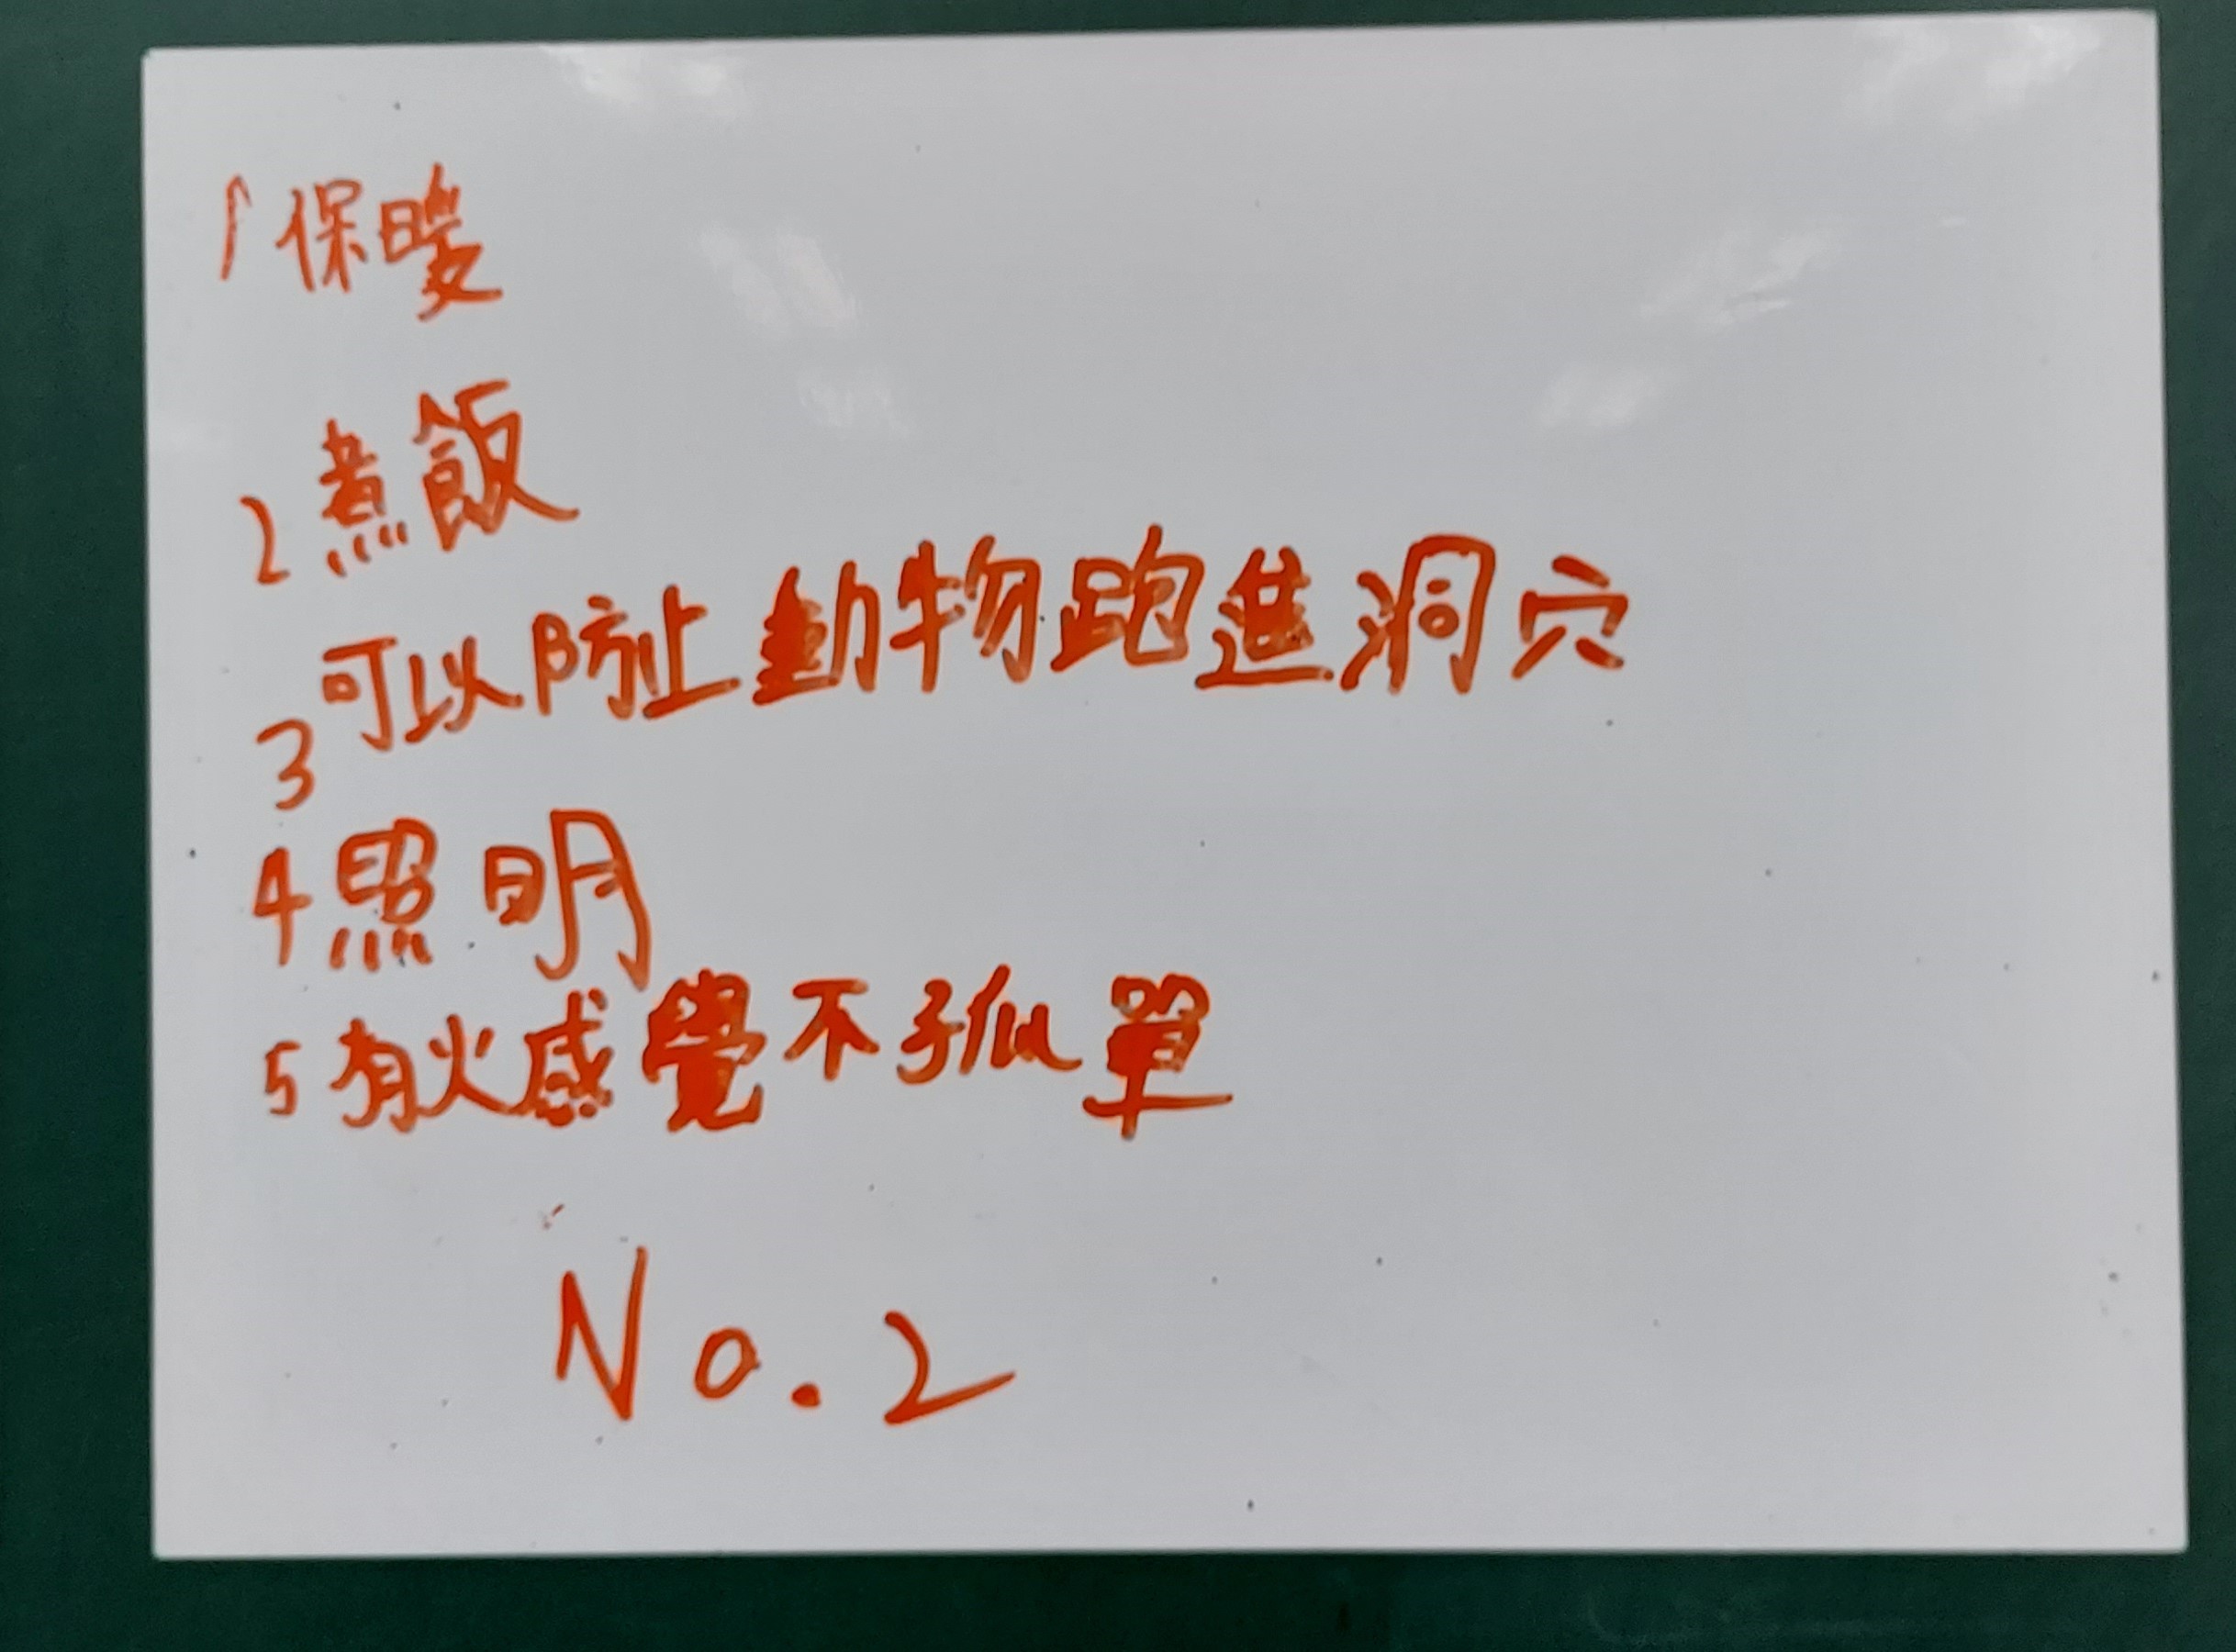 1 保暖
2 煮飯
3 可以防止動物跑進洞穴
4 照明
5 有火感覺不孤單
No.2